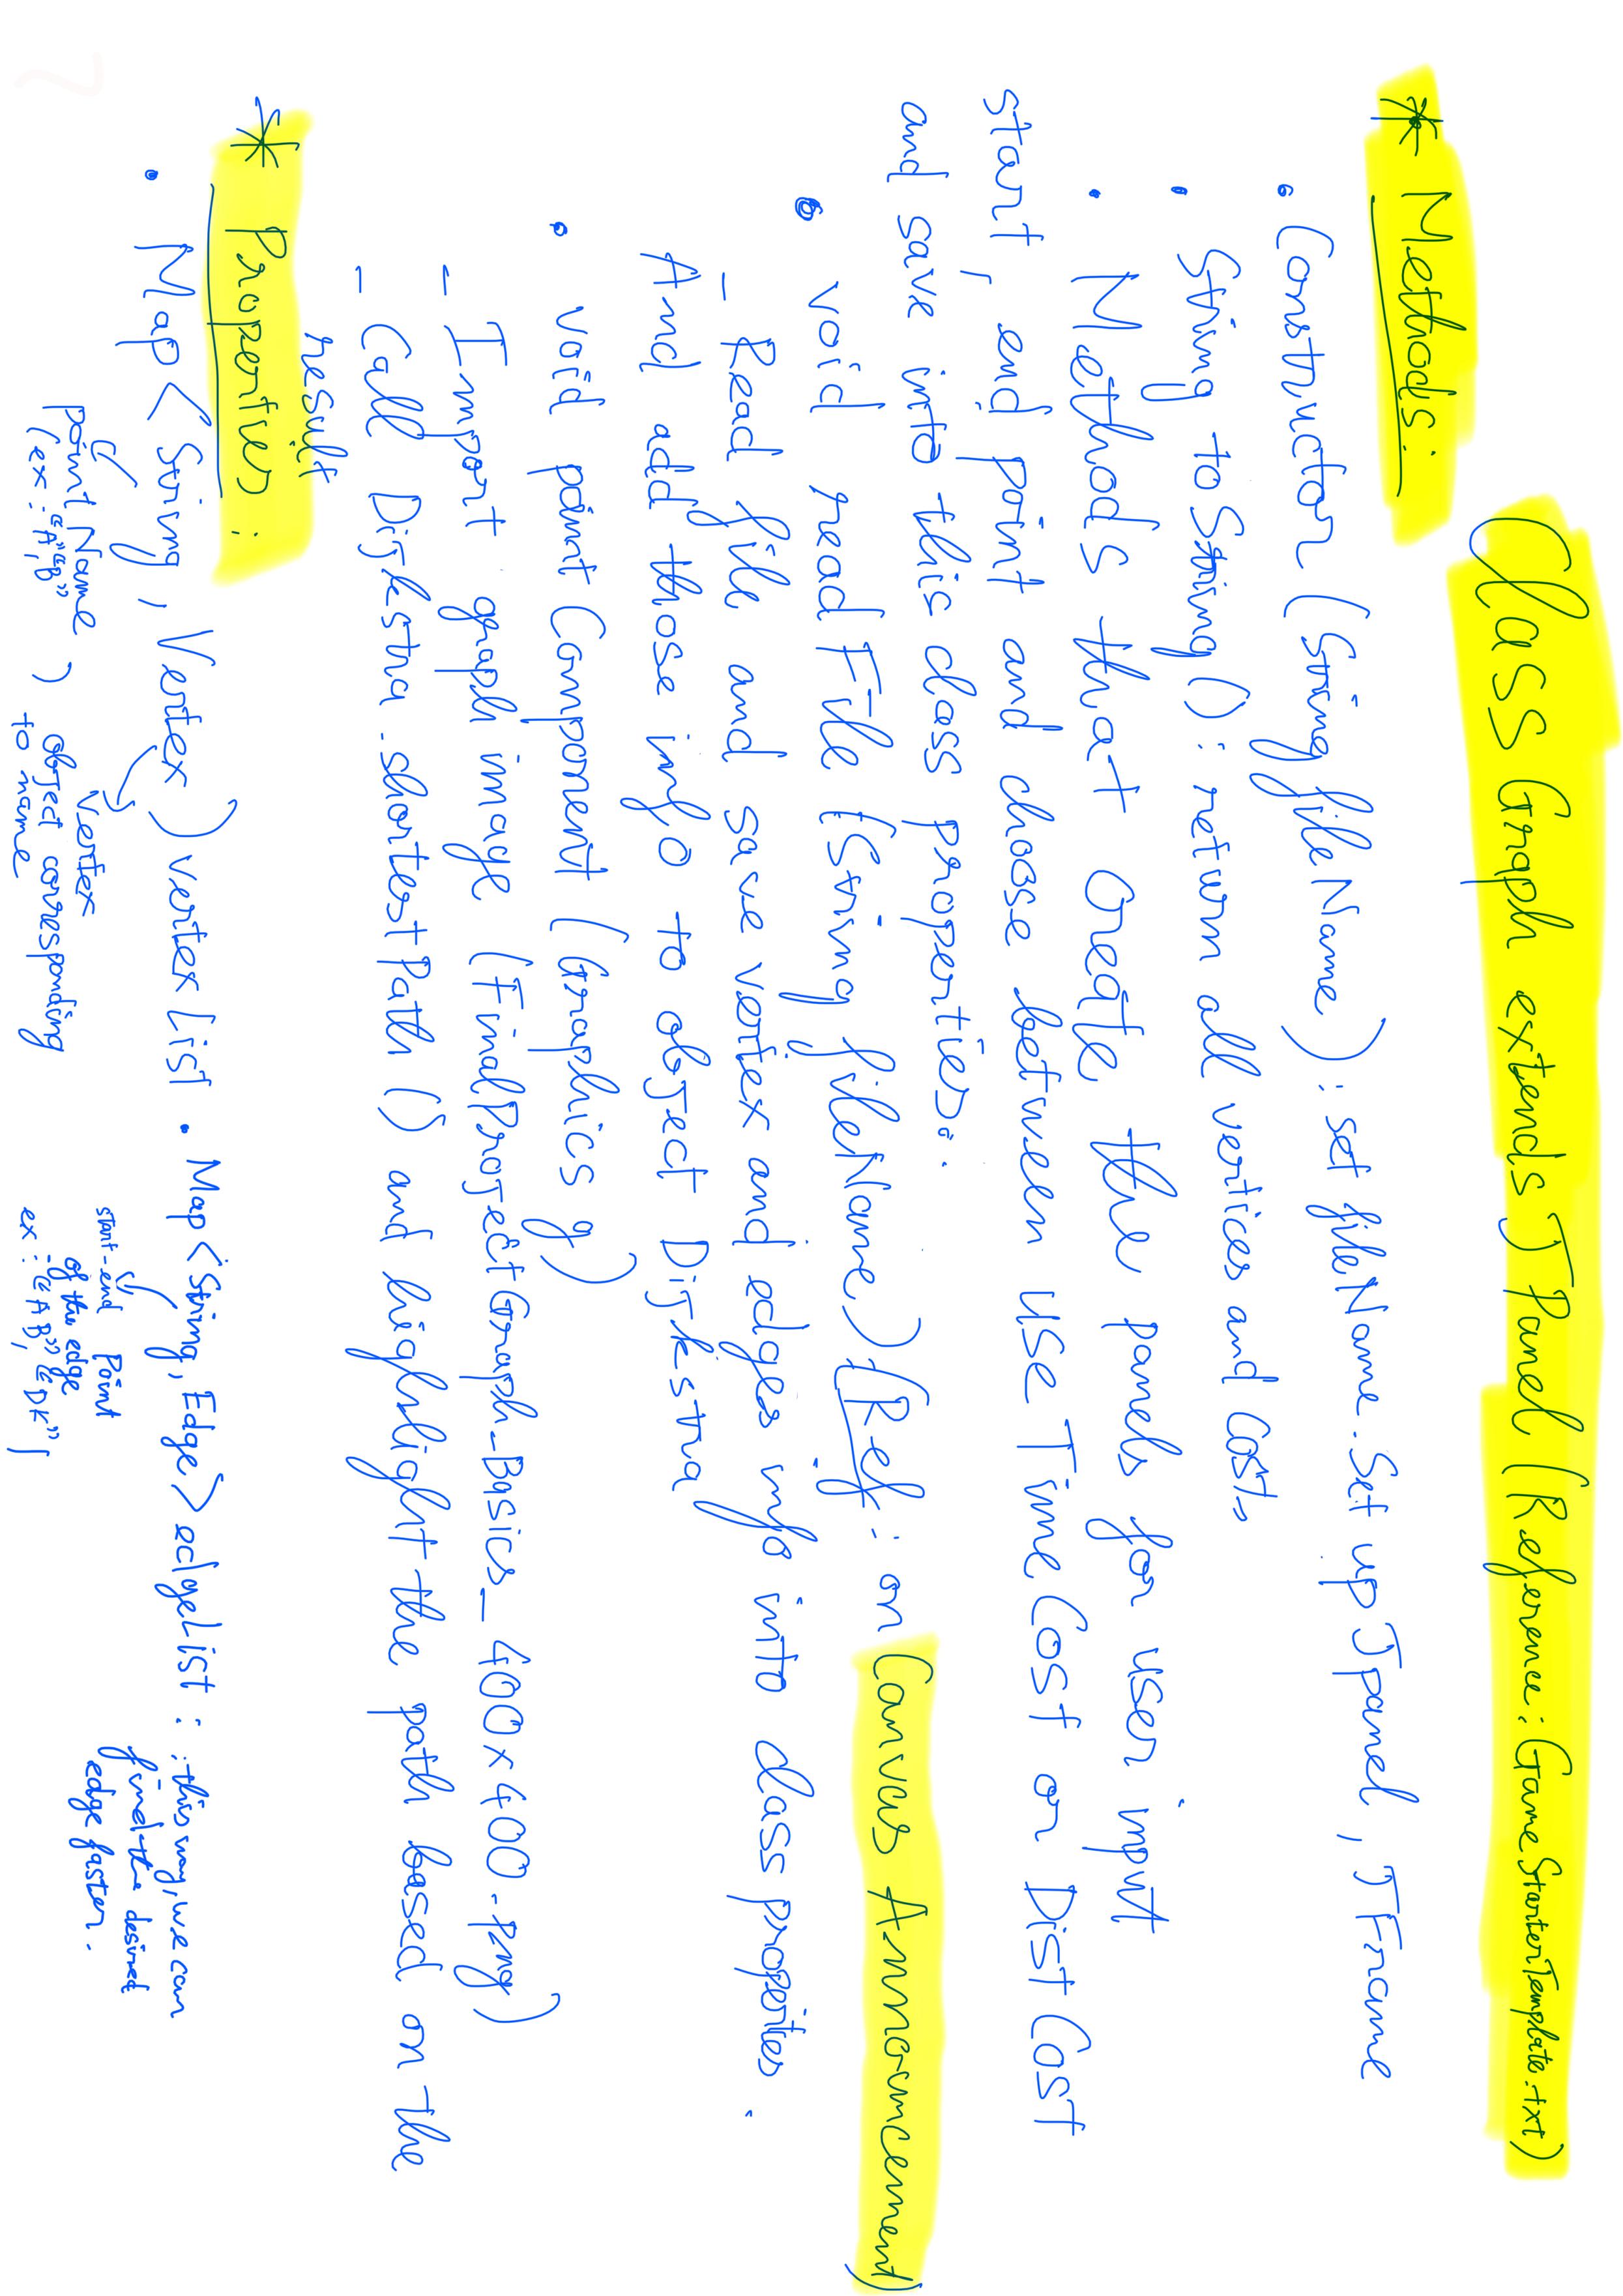 Class Graph extends JPanel (Reference: GameStarterTemplate.txt)
* Methods:
• Constructor (String fileName) : set fileName. Set up Jpanel, JFrame
• String toString () : return all vertices and cost
• Methods that create the panels for user input
start, end point and choose between use Time Cost or Dist Cost
and save into this class properties.
• void readFile (String fileName) (Ref: on Canvas Announcement)
- Read file and save vertex and edges info into class properties.
And add those info to object Dijkstra
• void paintComponent (Graphics g)
- Import graph image (FinalProjectGraph_Basics_400x400.png)
- Call Dijkstra.shortestPath () and highlight the path based on the
result
* Properties :
• Map<String, Vertex> vertexList • Map<String, Edge> edgeList : : this way, we can
find the desired
edge faster.
point Name
(ex: "A", "B" )
Vertex
object corresponding
to name
start-end Point
of the edge
ex: "AB", "DK" )